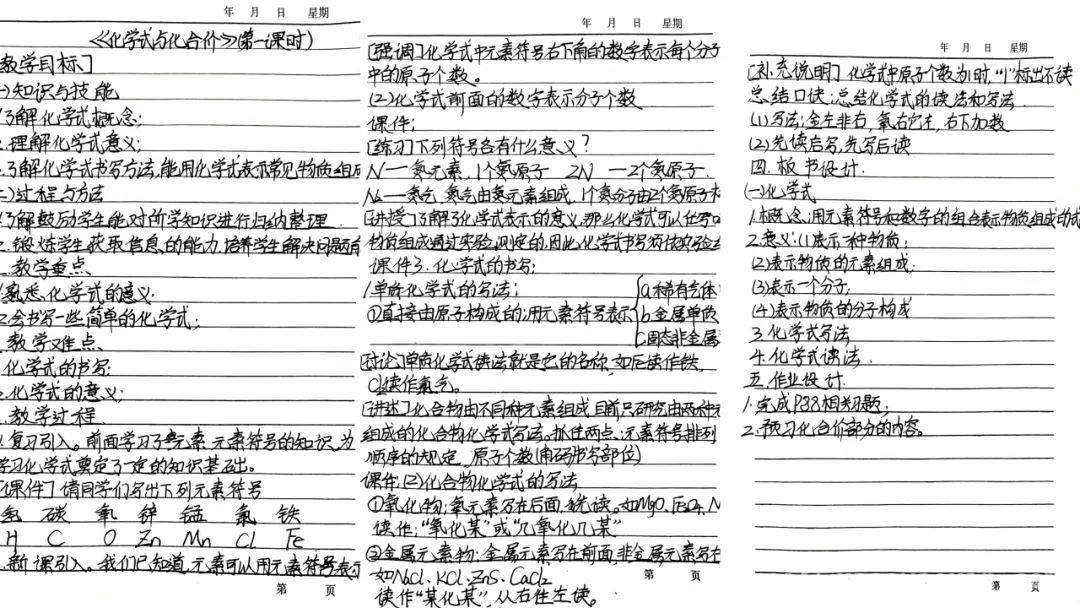 年 月 日 星期
《化学式与化合价》(第一课时)
教学目标]
一)知识与技能
了解化学式概念;
2.理解化学式意义;
.了解化学式书写方法,能用化学式表示常见物质组成
二)过程与方法
了解鼓励学生能对所学知识进行归纳整理
2.锻炼学生获取信息的能力,培养学生解决问题的
.教学重点
1.熟悉化学式的意义.
2.会书写一些简单的化学式;
.教学难点
化学式的书写
.化学式的意义;
.教学过程
.复习引入。前面学习了元素,元素符号的知识,为
学习化学式奠定了一定的知识基础。
[课件] 请同学们写出下列元素符号
氢 碳 氧 锌 锰 氯 铁
H C O Zn Mn Cl Fe
.新课引入。我们已知道,元素可以用元素符号表示
第 页
年 月 日 星期
[强调]化学式中元素符号右下角的数字表示每个分子
中的原子个数。
(2)化学式前面的数字表示分子个数
课件;
[练习]下列符号各有什么意义?
N—氮元素,1个氮原子 2N —2个氮原子.
N₂—氮气,氮气由氮元素组成,1个氮分子由2个氮原子
[讲授]了解了化学式表示的意义,那么化学式可以任写
物质组成通过实验测定的,因此化学式书写须依实验
课件3.化学式的书写;
1.单质化学式的写法;
①直接由原子构成的;用元素符号表示
a.稀有气体
b.金属单质
c.固态非金属
[讨论]单质化学式读法就是它的名称,如Fe读作铁,
Cl₂读作氯气。
[讲述]化合物由不同种元素组成,目前只研究由两种
组成的化合物化学式写法。抓住两点:元素符号排列
顺序的大规定,原子个数(角码书写部位)
课件:(2)化合物化学式的写法
①氧化物:氧元素写在后面,先读。如MgO.Fe₃O₄,N
读作:“氧化某”或“几氧化几某”
②金属元素物;金属元素写在前面,非金属元素写在
如NaCl.KCl.ZnS.CaCl₂
读作“某化某”,从右往左读。
第 页
年 月 日 星期
[补充说明] 化学式中原子个数为1时,“1”标出不读
总结口诀:总结化学式的读法和写法
(1)写法:金左非右,氧右它左,右下加数
(2)先读后写,先写后读
四.板书设计.
(一)化学式
1.概念:用元素符号和数字的组合表示物质组成的式
2.意义:(1)表示一种物质;
(2)表示物质的元素组成;
(3)表示一个分子;
(4)表示物质的分子构成
3.化学式写法
4.化学式读法.
五.作业设计.
1.完成P88相关习题;
2.预习化合价部分的内容。
第 页